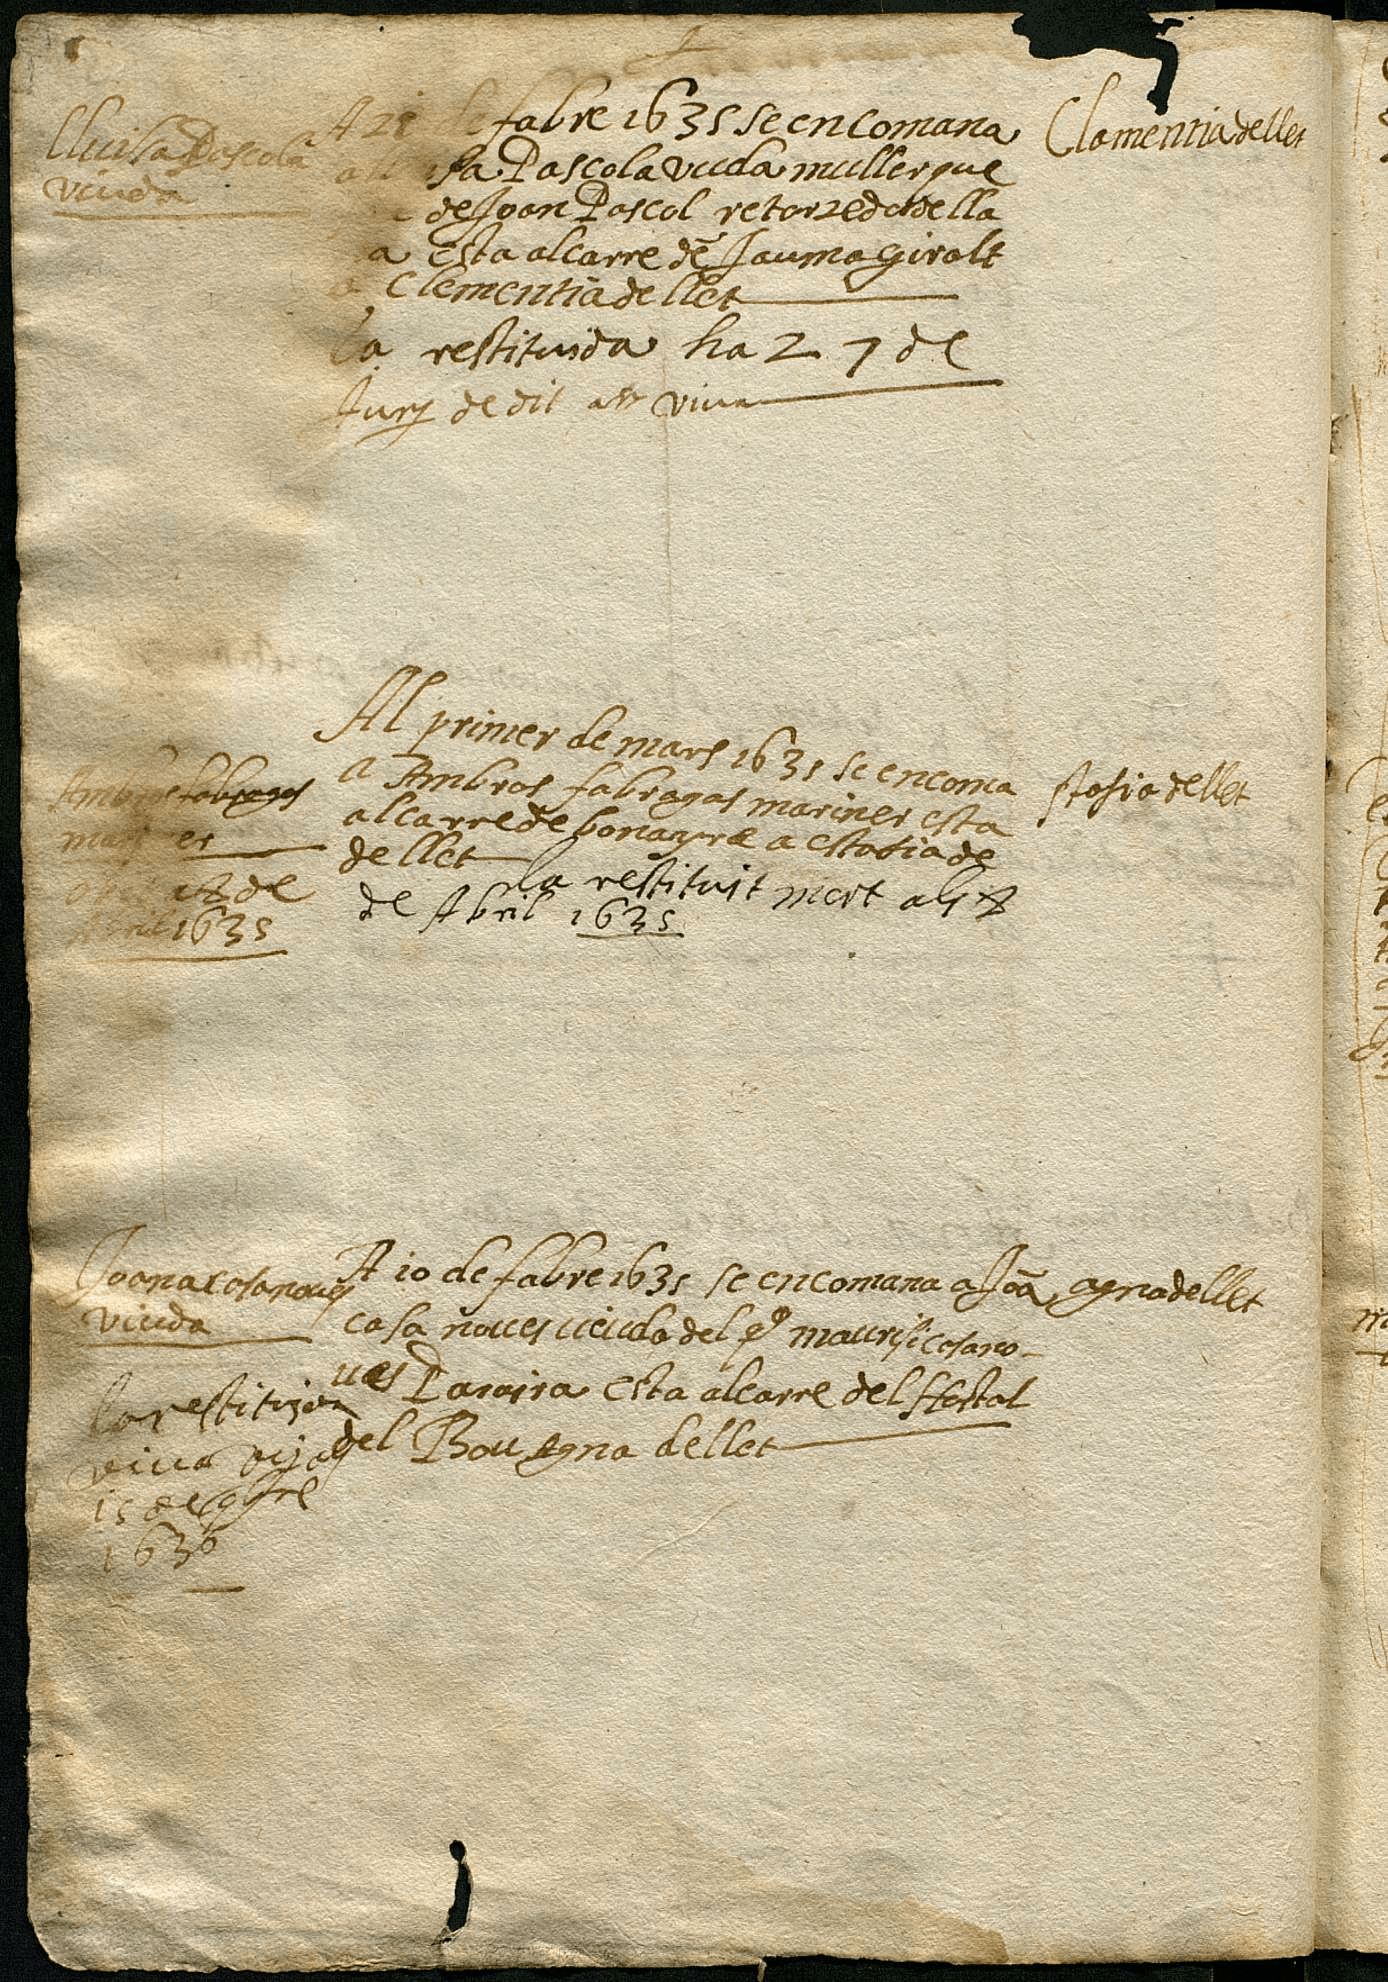 Lluisa Pascola
viuda
A 21 de fabre 1635 se encomana
a lluisa Pascola viuda muller que
de Joan Pascol retorzedor de lla
a esta al carre dē Jauma giralt
a Clementia de llet
Clamentia de llet
la restituida ha 27 de
Juny de dit viua
Ambros fabragas
mariner
18 de
Abril 1635
Al primer de mars 1635 se encoma
a Ambros fabragas mariner esta
al carre de bonayre a estasia de
de llet
la restituit mort als 18
de Abril 1635
stasia de llet
Joana casanoues
viuda
la restituida
viua vij als
15 de 9bre
1636
A 10 de fabre 1635 se encomana a Joā
casa noues uiuda del qº maurisi casano
ues Paraira esta al carre del Hostal
del Bou agna de llet
agna de llet